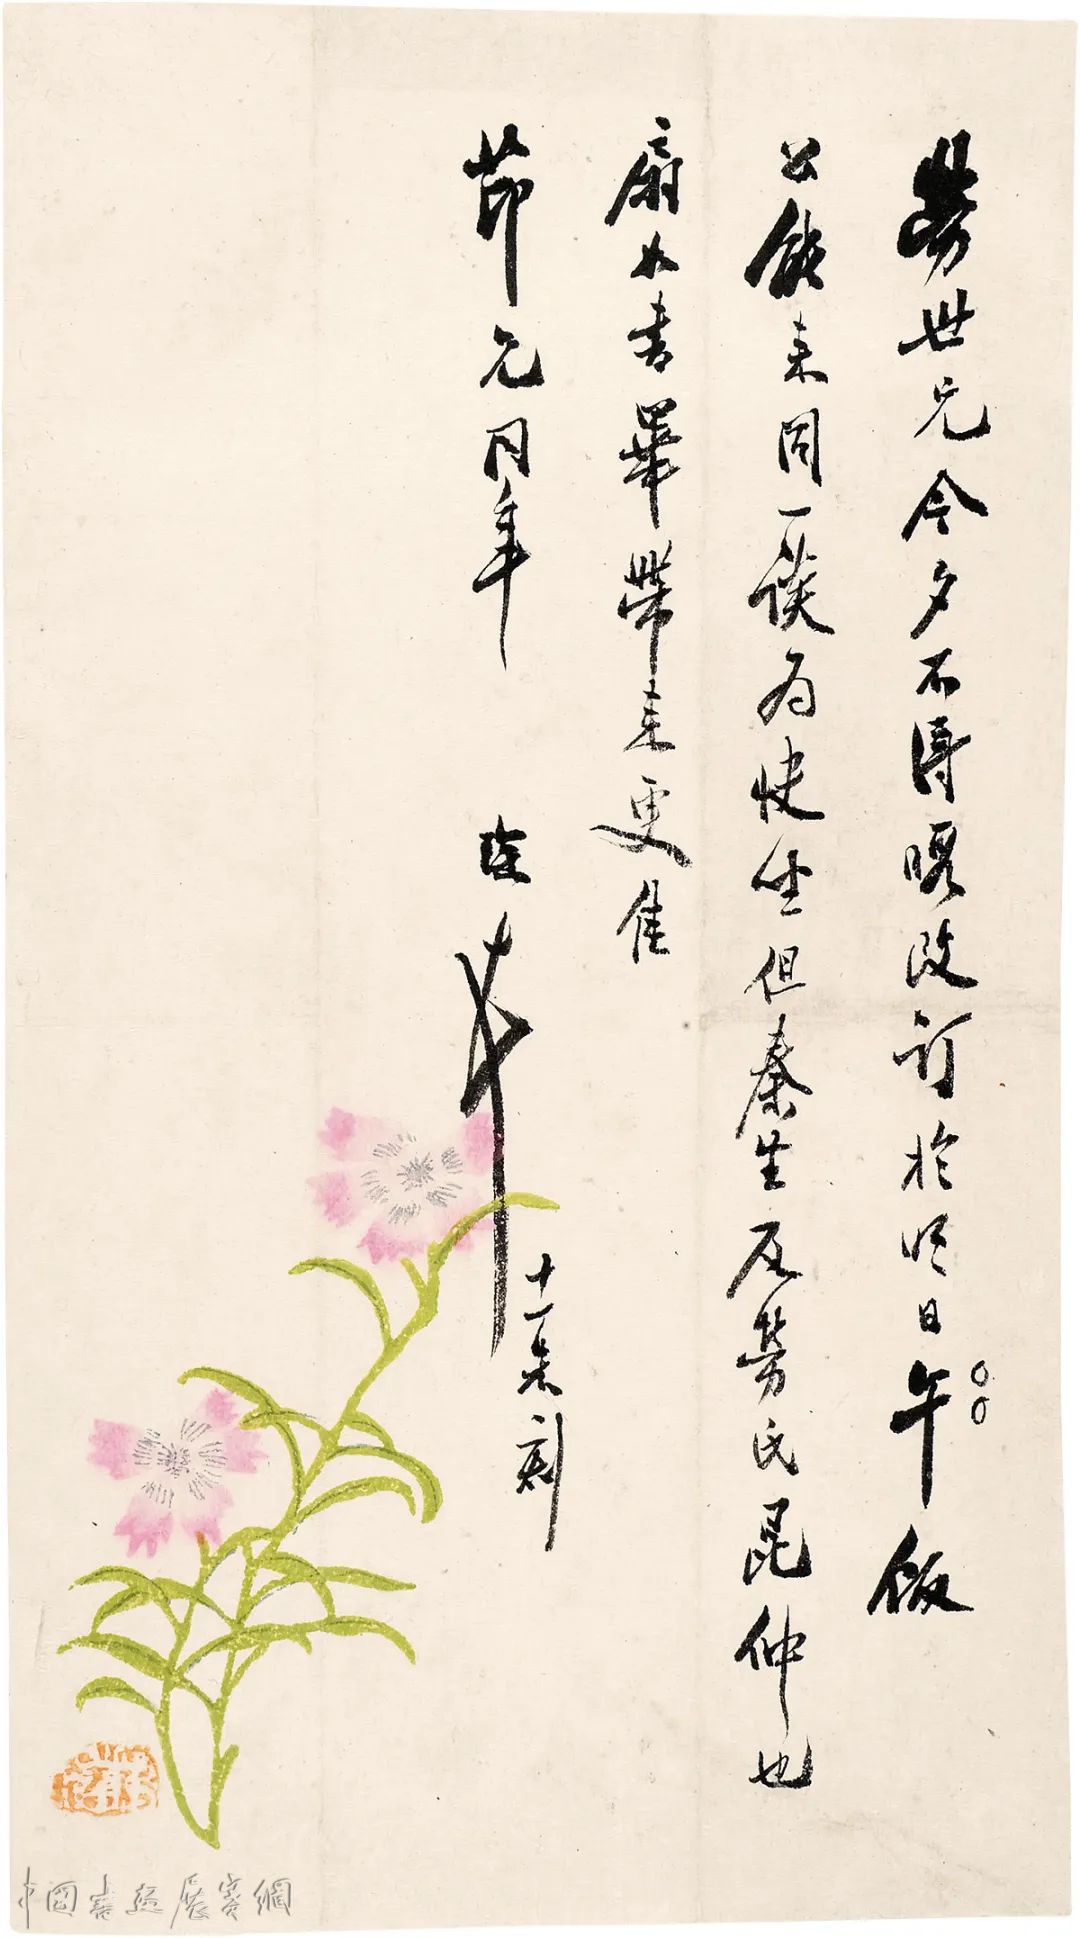 勞世兄今夕不得暇改訂於明日午飯
公能來同一談為快坐但秦生及勞氏昆仲也
扇如書畢帶來更佳
節兄同年
期
十一朱刻
中国書画展賽網